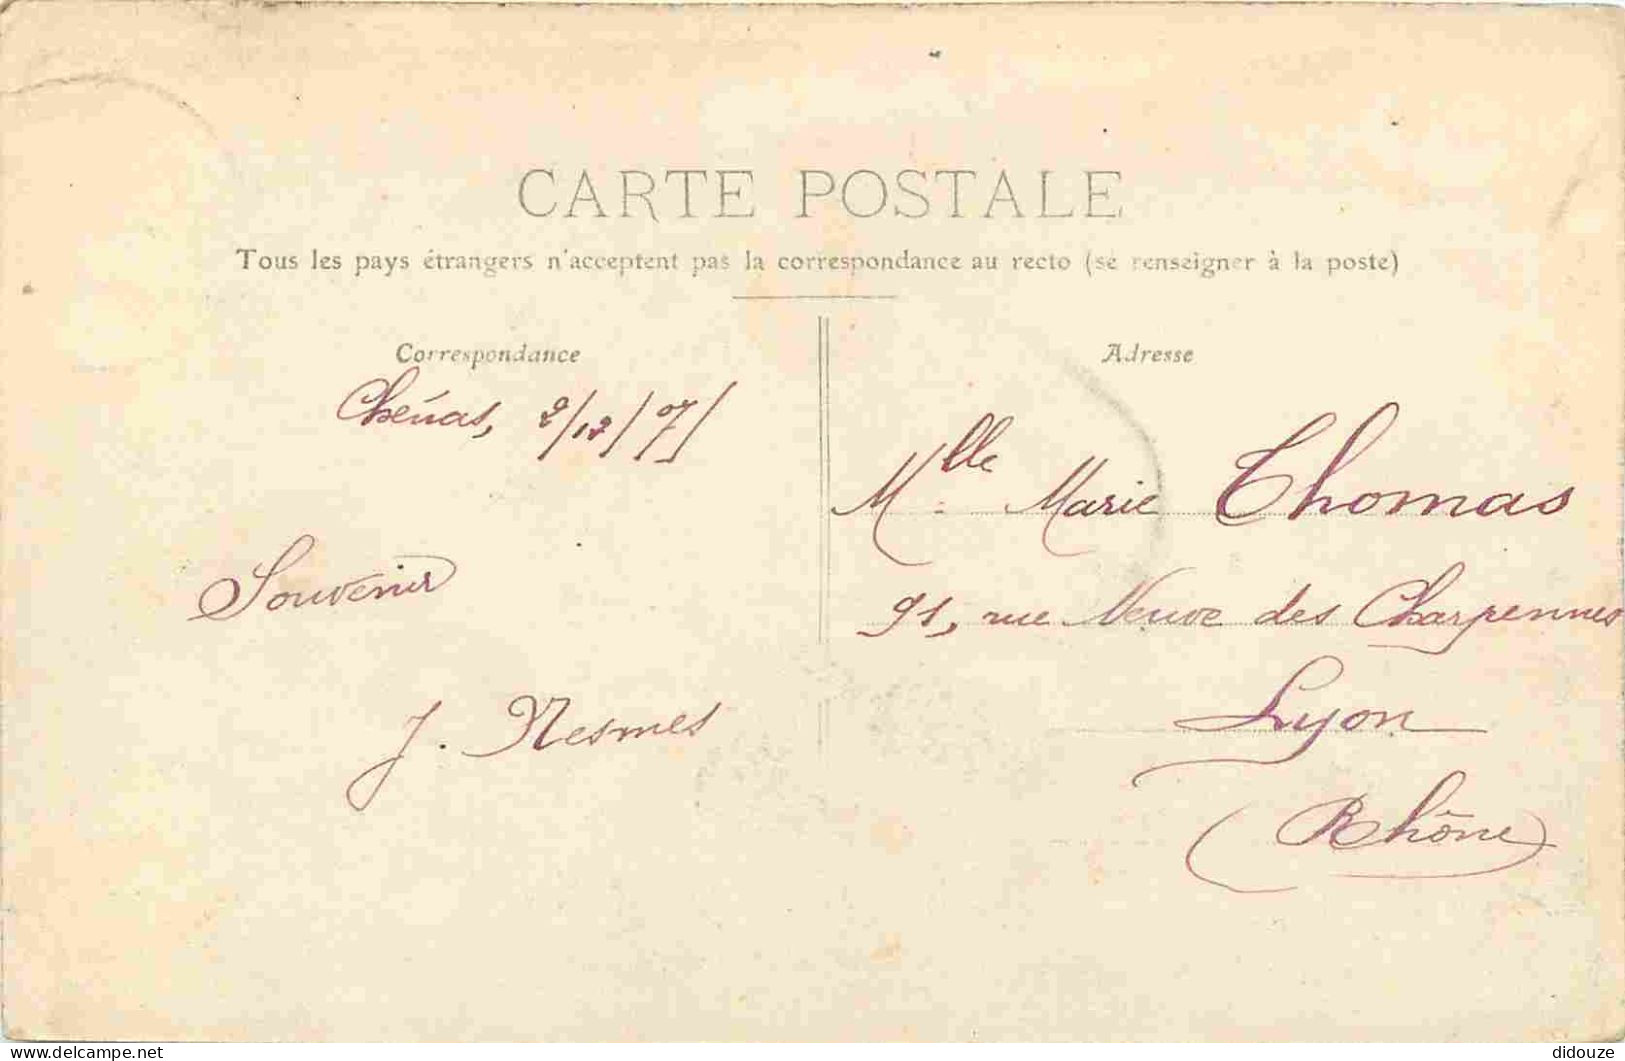 CARTE POSTALE
Tous les pays étrangers n'acceptent pas la correspondance au recto (se renseigner à la poste)
Correspondance
Chénas, 2/12/07/
Souvenir
J. Nesmes
Adresse
Mlle Marie Thomas
91, rue Neuve des Charpennes
Lyon
(Rhône)
delcampe.net
didouze